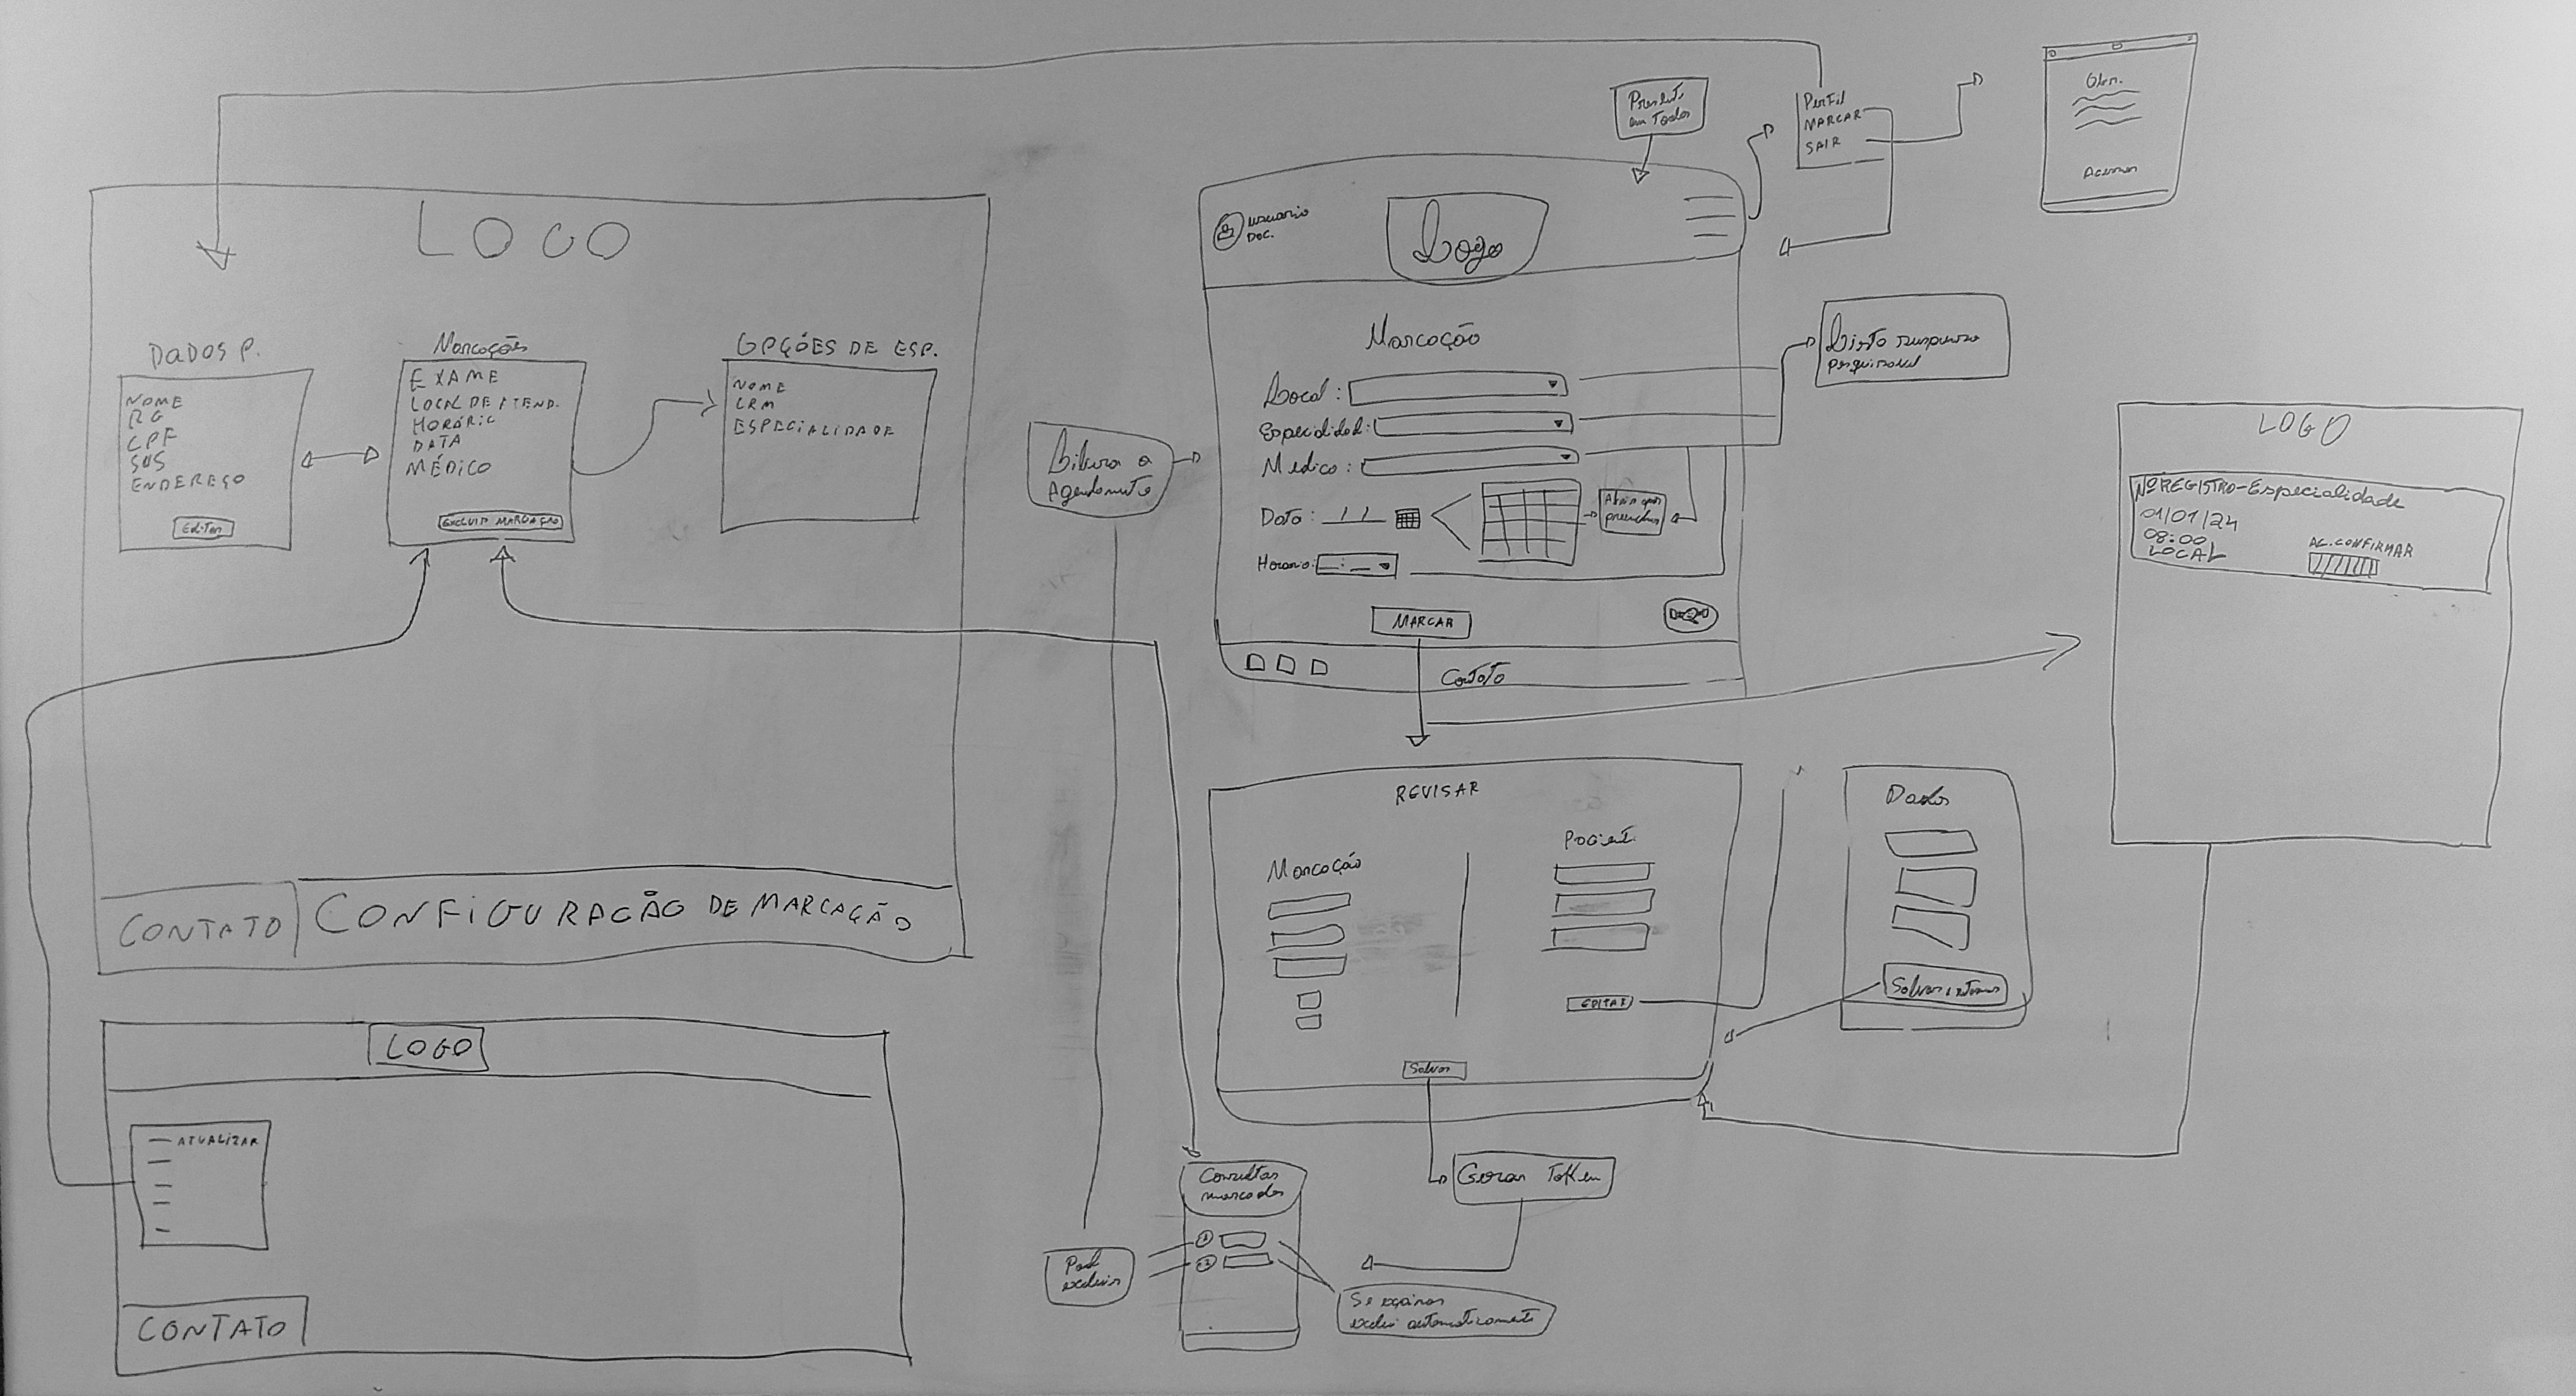 LOGO
DADOS P.
NOME
RG
CPF
SUS
ENDEREÇO
Editar
Marcações
EXAME
LOCAL DE ATEND.
HORÁRIO
DATA
MÉDICO
EXCLUIR MARCAÇÃO
OPÇÕES DE ESP.
NOME
CRM
ESPECIALIDADE
CONTATO
CONFIGURAÇÃO DE MARCAÇÃO
LOGO
ATUALIZAR
CONTATO
Presente
em Todos
Perfil
MARCAR
SAIR
Acessar
usuario
Doc.
Logo
Marcação
Local :
Especialidad :
Medico :
Data : / /
Horario : :
Abrir após
preencher
MARCAR
Contato
Lista suspensa
pesquisavel
Libera o
Agendamento
LOGO
Nº REGISTRO-Especialidade
01/01/24
08:00
LOCAL
AG. CONFIRMAR
REVISAR
Marcação
Pacient.
EDITAR
Salvar
Dados
Salvar e retornar
Gerar Token
Consultas
marcadas
1
2
Pod
excluir
Se expirar
exclui automaticamente